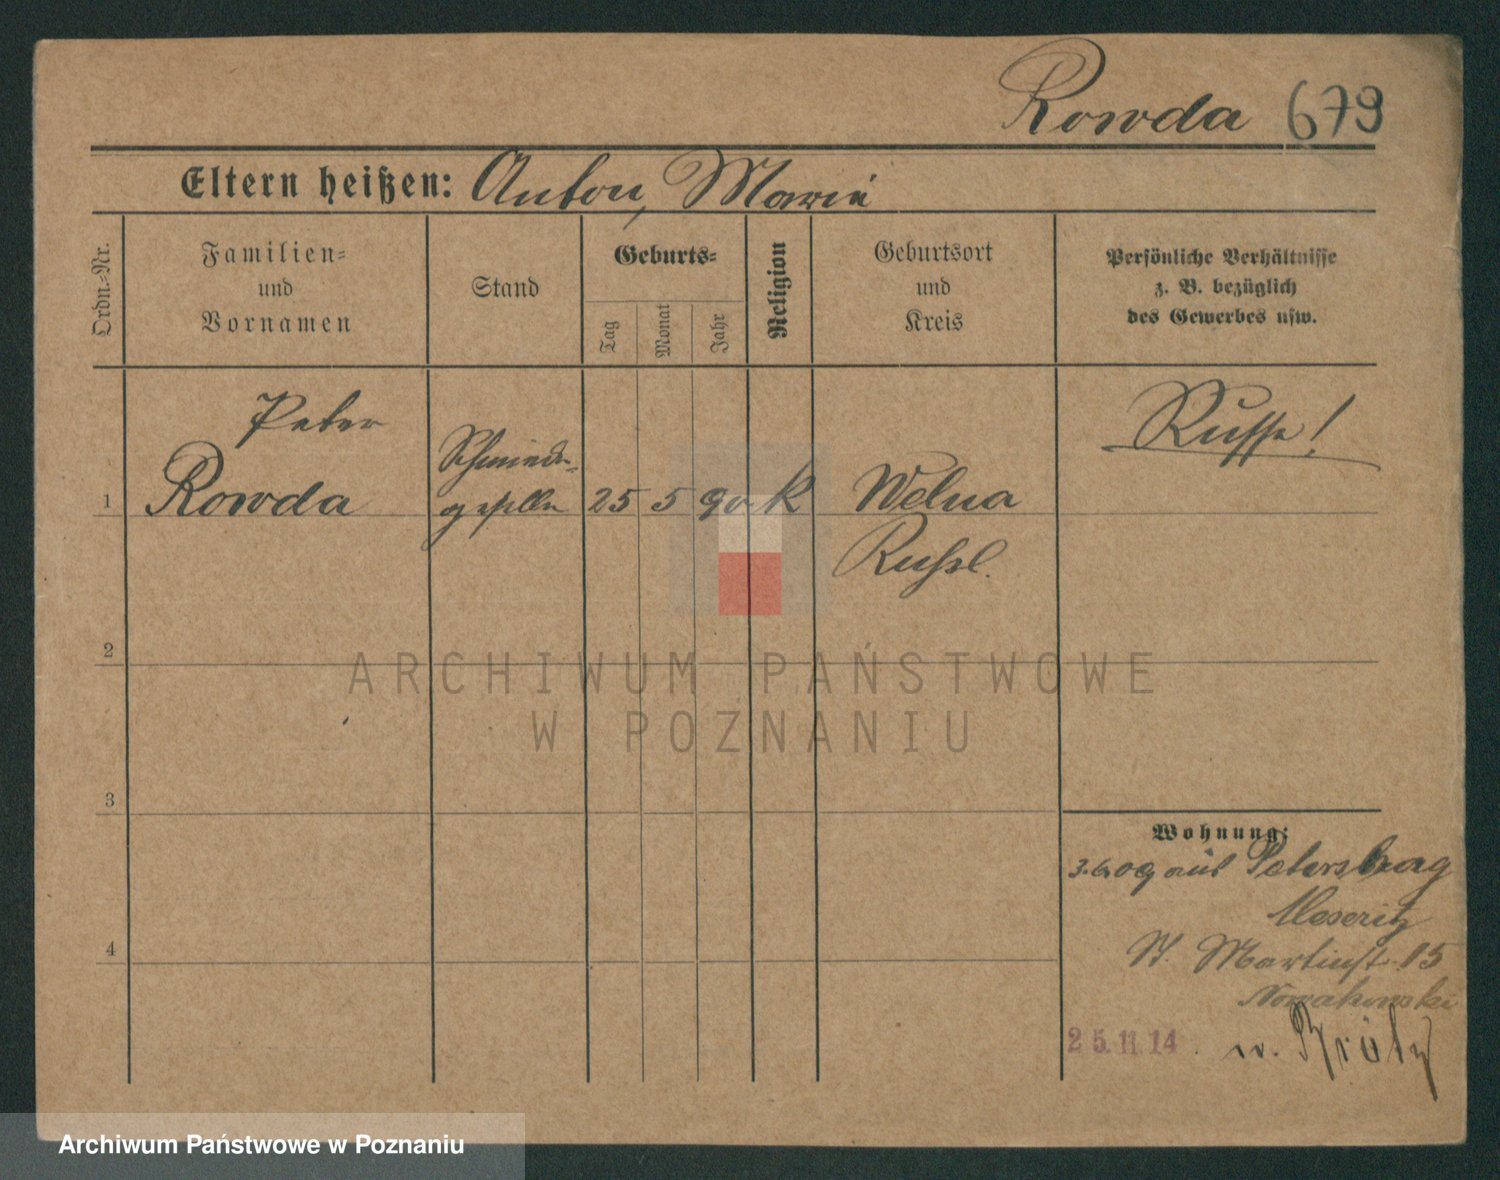 Rowda 679
Eltern heißen: Anton, Marie
Ordn.-Nr.
Familien-
und
Vornamen
Stand
Geburts-
Tag
Monat
Jahr
Religion
Geburtsort
und
Kreis
Persönliche Verhältnisse
z. B. bezüglich
des Gewerbes usw.
Peter
1 Rowda
Schmiede-
geselle
25 5 90 k
Welna
Russl.
Russe!
2
3
4
Wohnung:
3.6.09 aus Petersburg
Meseritz
St. Martinst. 15
Nowakowski
25.11.14. n.
ARCHIWUM PAŃSTWOWE
W POZNANIU
Archiwum Państwowe w Poznaniu